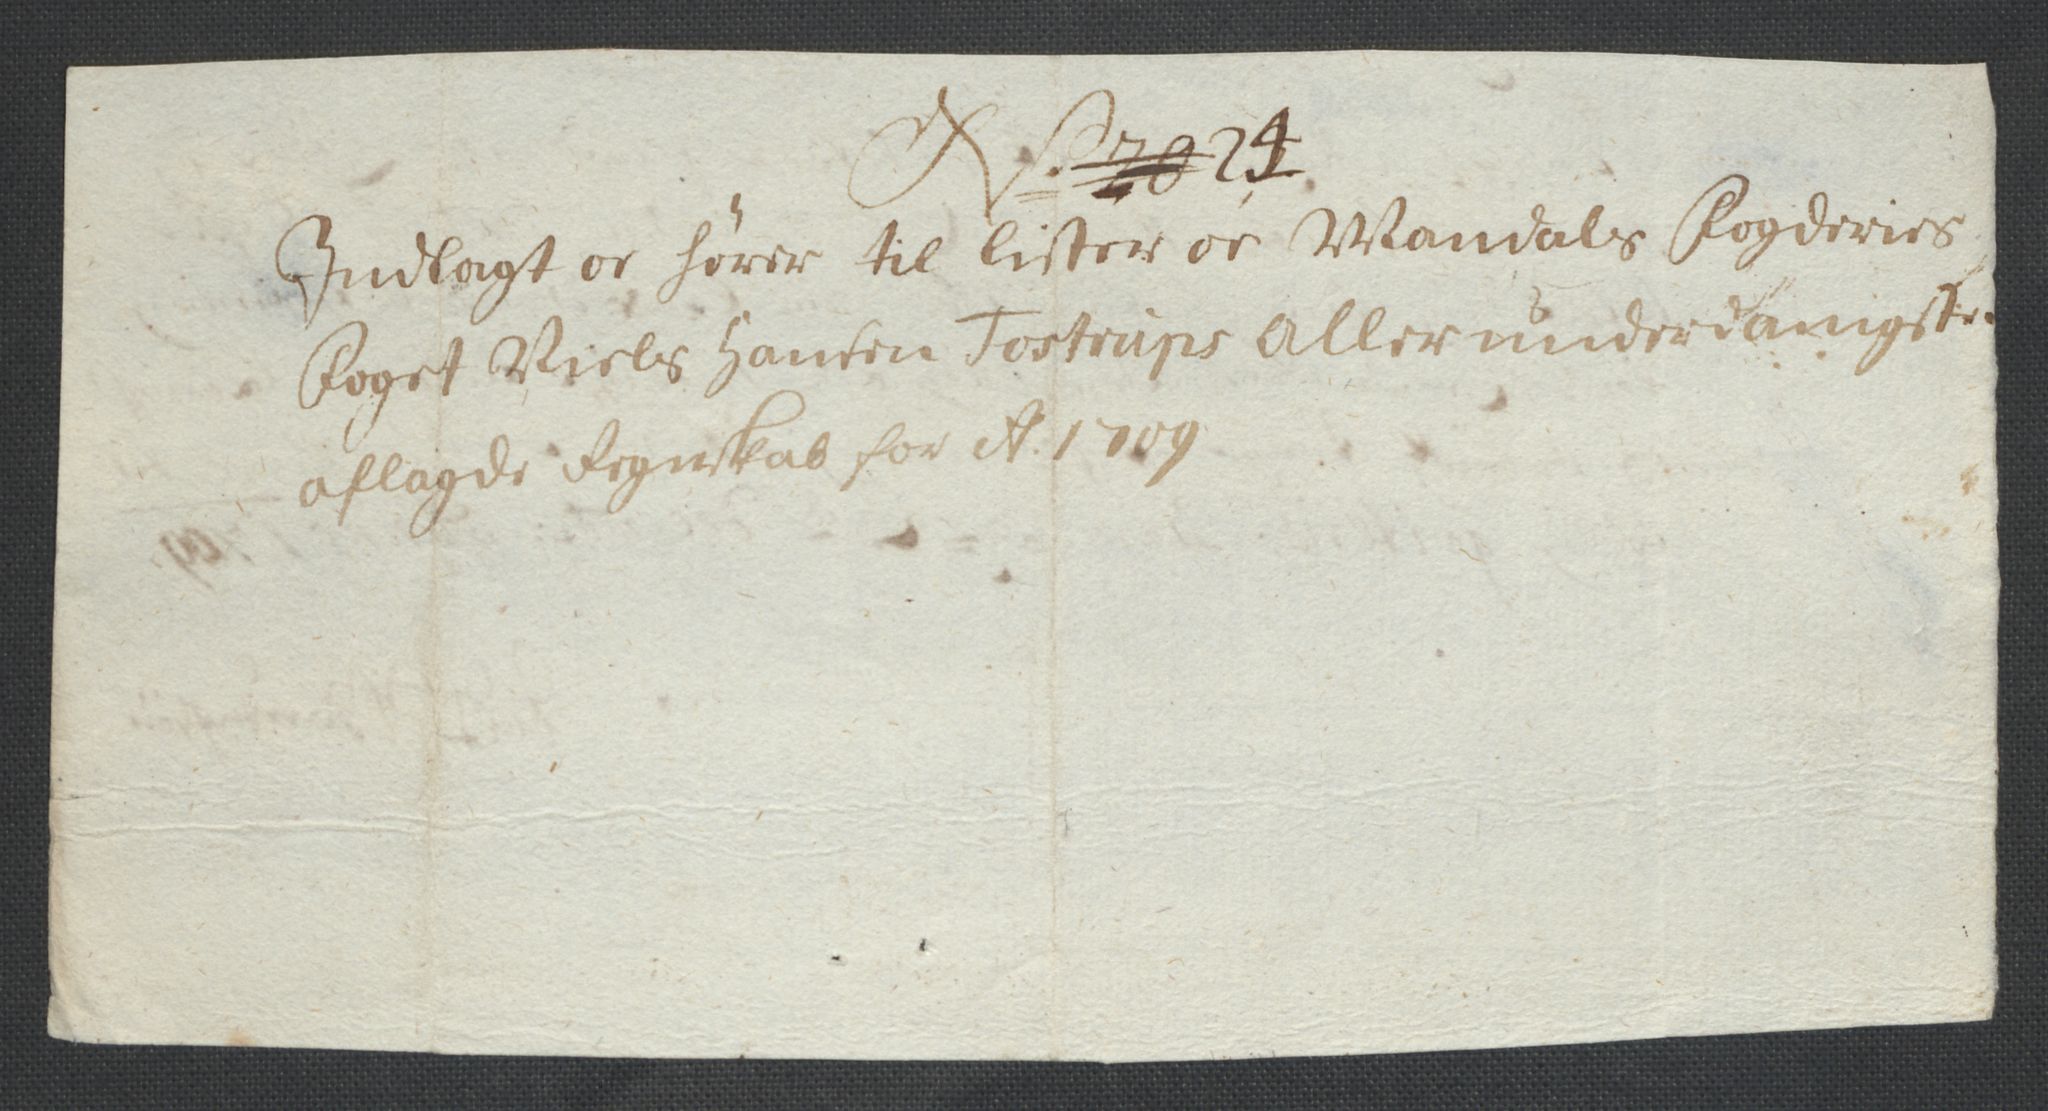 No. 24
Indlagt oc hører til Lister oc Mandals Fogderies
Foget Niels Hansen Tostrups Allerunderdanigste
aflagde Regnskab for Ao. 1709